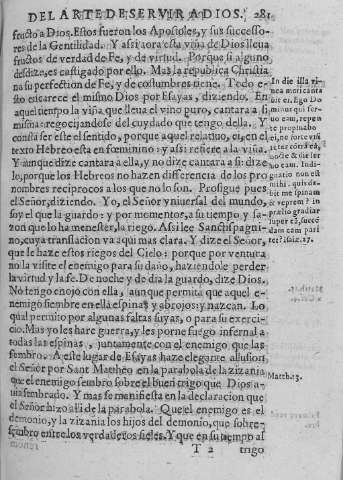 DEL ARTE DE SERVIR A DIOS. 281
fructo a Dios. Estos fueron los Apostoles, y sus successo-
res de la Gentilidad. Y assi aora esta viña de Dios lleua
fructos de verdad de Fe, y de virtud. Porque si alguno
desdize, es castigado por ello. Mas la republica Christia
na su perfection de Fe, y de costumbres tiene. Todo e-
sto encarece el mismo Dios por Esayas, diziendo. En
aquel tiempo la viña, que lleua el vino puro, cantara a si
misma: regocijandose del cuydado que tengo della. Y
consta ser este el sentido, porque aquel relatiuo, ei, en el
texto Hebreo esta en fœminino: y assi refiere a la viña.
Y aunque dize cantara a ella, y no dize cantara a si: dize
lo, porque los Hebreos no hazen differencia de los pro
nombres reciprocos a los que no lo son. Prosigue pues
el Señor, diziendo. Yo, el Señor vniuersal del mundo,
soy el que la guardo: y por momentos, a su tiempo y sa-
zon que lo ha menester, la riego. Assi lee Sanctispagni-
no, cuya translacion va aqui mas clara. Y dize el Señor,
que le haze estos riegos del Cielo: porque por ventura
no la visite el enemigo para su daño, haziendole perder
la virtud y la fe. De noche y de dia la guardo, dize Dios.
No tengo enojo con ella, aunque permita que aquel e-
nemigo siembre en ella espinas y abrojos: y nazcan. Lo
qual permito por algunas faltas suyas, o para su exerci-
cio. Mas yo les hare guerra, y les porne fuego infernal a
todas las espinas, juntamente con el enemigo que las
sembro. A este lugar de Esayas haze elegante allusion
el Señor por Sant Mattheo en la parabola de la zizania
que el enemigo sembro sobre el buen trigo que Dios a-
uia sembrado. Y mas se manifiesta en la declaracion que
el Señor hizo alli de la parabola. Que el enemigo es el
demonio, y la zizania los hijos del demonio, que sobre-
sembro entre los verdaderos fieles. Y que en su tiempo al
T 2 trigo
In die illa vi
nea
cantabit
ei. Ego Do
minus qui
seruo
eam, repen
te propinabo
ei, ne forte
visitetur
contra eã,
nocte & die ser
uo eam. Indi-
gnatio non est
mihi. quis da-
bit me spinam
& veprem? in
prælio gradiar
super eã, succẽ
dam eam pari
ter: Isaiæ. 27.
Matth. 13.